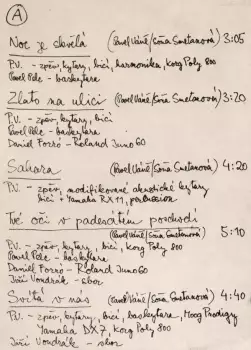 A
Noc je skvělá (Pavel Váně/Soňa Smetanová) 3:05
P.V. - zpěv, kytary, bicí, harmonika, Korg Poly 800
Pavel Pelc - baskytara
Zlato na ulici (Pavel Váně/Soňa Smetanová) 3:20
P.V. - zpěv, kytary, bicí
Pavel Pelc - baskytara
Daniel Forró - Roland Juno 60
Sahara (Pavel Váně/Soňa Smetanová) 4:20
P.V. - zpěv, modifikované akustické kytary
bicí + Yamaha RX11, percussion
Tvé oči v padesátém poschodí
(Pavel Váně/Soňa Smetanová) 5:10
P.V. - zpěv, kytary, bicí, Korg Poly 800
Pavel Pelc - baskytara
Daniel Forró - Roland Juno 60
Jiří Vondrák - sbor
Světa v nás (Pavel Váně/Soňa Smetanová) 4:40
P.V. - zpěv, kytary, bicí, baskytara, Moog Prodigy
Yamaha DX7, Korg Poly 800
Jiří Vondrák - sbor